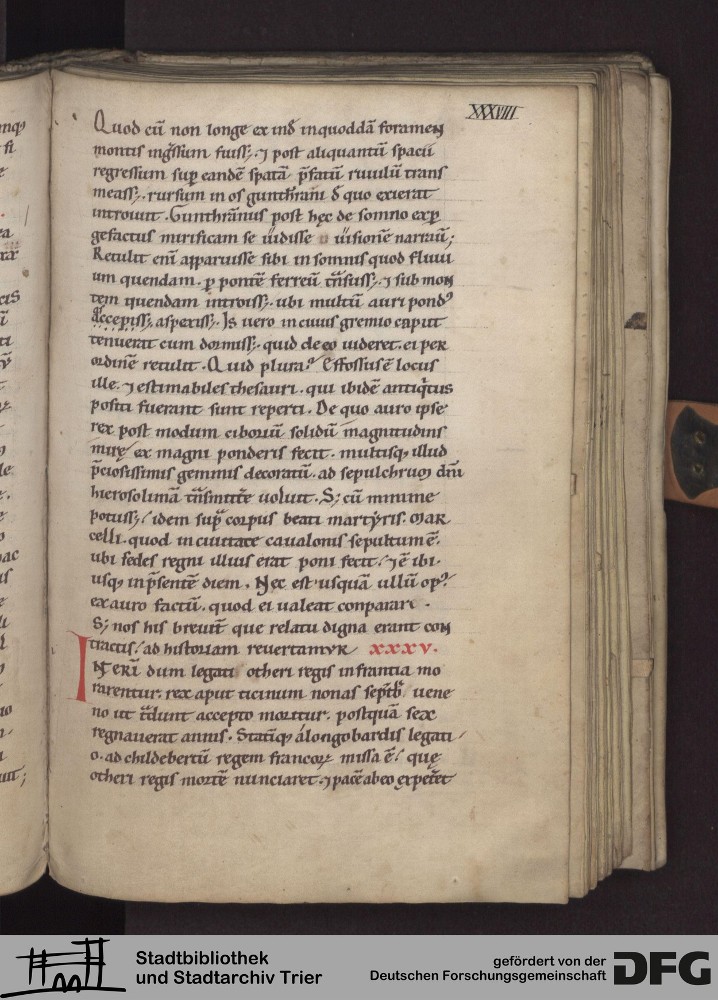 XXXVIII
Quod cū non longe ex inđ inquoddā foramen
montis ingr̄ssum fuiss&; ⁊ post aliquantū spacii
regressum sup̱ eandē spatā p̄fatū riuulū trans
meass&; rursum in os gunthrāni đ quo exierat
introiuit. Gunthrānus post hęc de somno exp̱
gefactus mirificam se uidisse uisionē narrauit;
Retulit enī apparuisse sibi in somnis quod fluui
um quendam. p̱ pontē ferreū tn̄siss&; ⁊ sub mon
tem quendam introiss&; ubi multū auri pond⁹
accepiss&; aspexiss&; Is uero in cuius gremio caput
tenuerat cum dormiss&; quid de eo uideret. ei per
ordinē retulit. Quid plura? Effossus ē locus
ille. ⁊ estimabiles thesauri. qui ibidē antiq̇tus
positi fuerant sunt reperti. De quo auro ipse
rex post modum ciborium solidū magnitudinis
mirę ex magni ponderis fecit. multisq; illud
p̄ciosissimis gemmis decoratū. ad sepulchrum dn̄i
hierosolimā tn̄smittere uoluit. S; cū minime
potuiss&; idem sup̱ corpus beati martyris. mar
celli. quod in ciuitate caualonis sepultum ē.
ubi sedes regni illius erat poni fecit. ⁊ ē ibi
usq; in p̄sentē diem. Nec est usquā ullū op⁹
ex auro factū. quod ei ualeat conparari.
S; nos his breuit̄ que relatu digna erant con
tractis. ad historiam reuertamur xxxv.
INTERĪ dum legati otheri regis infrantia mo
rarentur. rex aput ticinum nonas septb̄. uene
no ut tradunt accepto moritur. postquā sex
regnauerat annis. Statīq; a longobardis legati
o. ad childebertū regem francoꝝ missa ē. quę
otheri regis mortē nunciaret. ⁊ pacē ab eo expet̄et
Stadtbibliothek
und Stadtarchiv Trier
gefördert von der
Deutschen Forschungsgemeinschaft
DFG